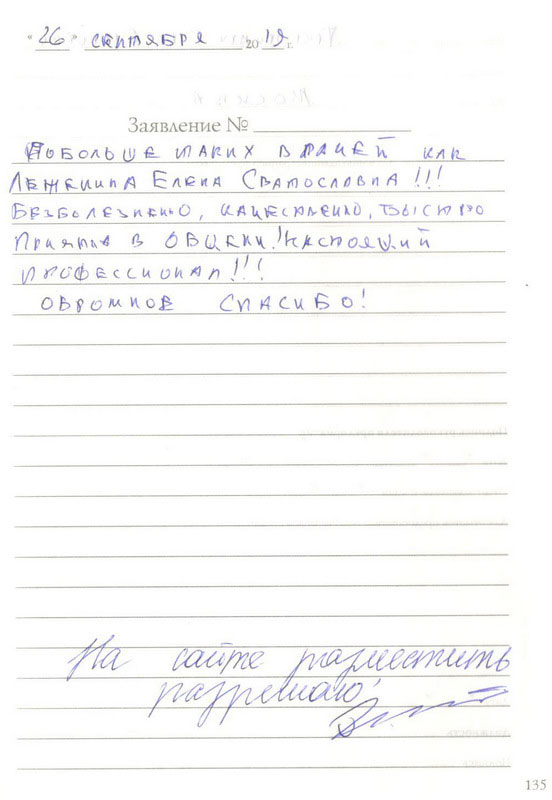 "26" сентября 2019 г.
Заявление № ___
Побольше таких врачей как
Леженина Елена Святославна!!!
Безболезненно, качественно, быстро
Приятна в общении! Настоящий
профессионал!!!
Огромное спасибо!
На сайте разместить
разрешаю!
135